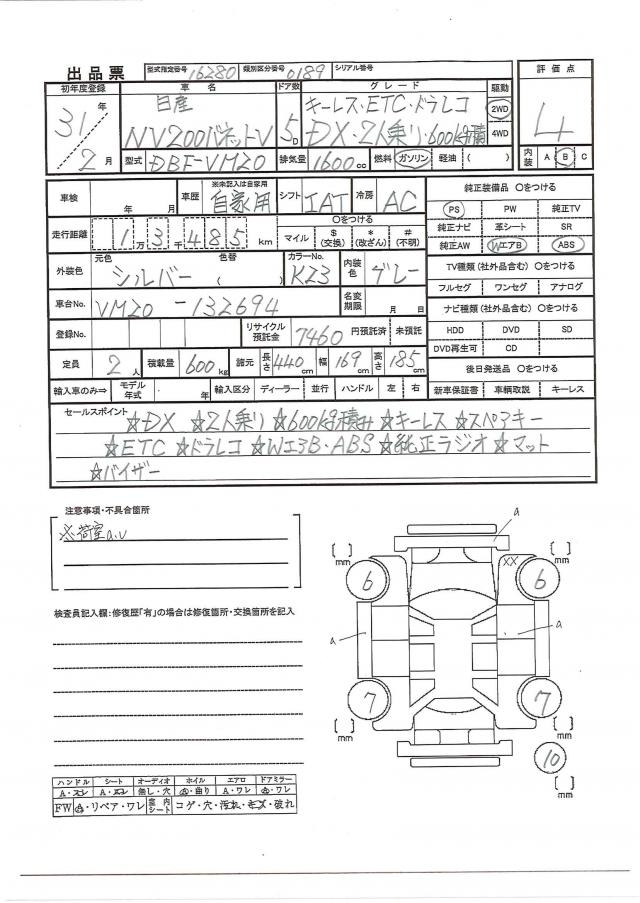 出品票 型式指定番号 16280 類別区分番号 0189 シリアル番号
初年度登録 車名 ドア数 グレード 駆動 評価点
31年 日産 5D キーレス・ETC・ドラレコ 2WD 4
NV200バネットV DX・2人乗り・600kg積 4WD
2月 型式 DBF-VM20 排気量 1600cc 燃料 ガソリン 軽油 ( ) 内装 A B C
車検 年 月 車歴 ※未記入は自家用 自家用 シフト IAT 冷房 AC 純正装備品 〇をつける
PS PW 純正TV
走行距離 1万3千485km 〇をつける マイル $(交換) *(改ざん) #(不明) 純正ナビ 革シート SR
純正AW WエアB ABS
外装色 元色 色替 シルバー ( ) カラーNo. K23 内装色 グレー TV種類(社外品含む) 〇をつける
フルセグ ワンセグ アナログ
車台No. VM20-132694 名変期限 月 日 ナビ種類(社外品含む) 〇をつける
登録No. リサイクル預託金 7460 円預託済 未預託 HDD DVD SD
DVD再生可 CD
定員 2人 積載量 600kg 諸元 長さ 440cm 幅 169cm 高さ 185cm 後日発送品 〇をつける
輸入車のみ⇒ モデル年式 年 輸入区分 ディーラー 並行 ハンドル 左 右 新車保証書 車輌取説 キーレス
セールスポイント ☆DX ☆2人乗り ☆600kg積み ☆キーレス ☆スペアキー
☆ETC ☆ドラレコ ☆WエアB・ABS ☆純正ラジオ ☆マット
☆バイザー
注意事項・不具合箇所
※荷室a.v
検査員記入欄:修復歴「有」の場合は修復箇所・交換箇所を記入
a
[ ] mm [ ] mm
XX
6 6
a a
7 7
[ ] mm [ ] mm
10
[ ] mm
ハンドル シート オーディオ ホイル エアロ ドアミラー
A・スレ A・コレ 無し・穴 A・曲り A・ワレ A・ワレ
FW A・リペア・ワレ 室内シート コゲ・穴・汚れ・キズ・破れ